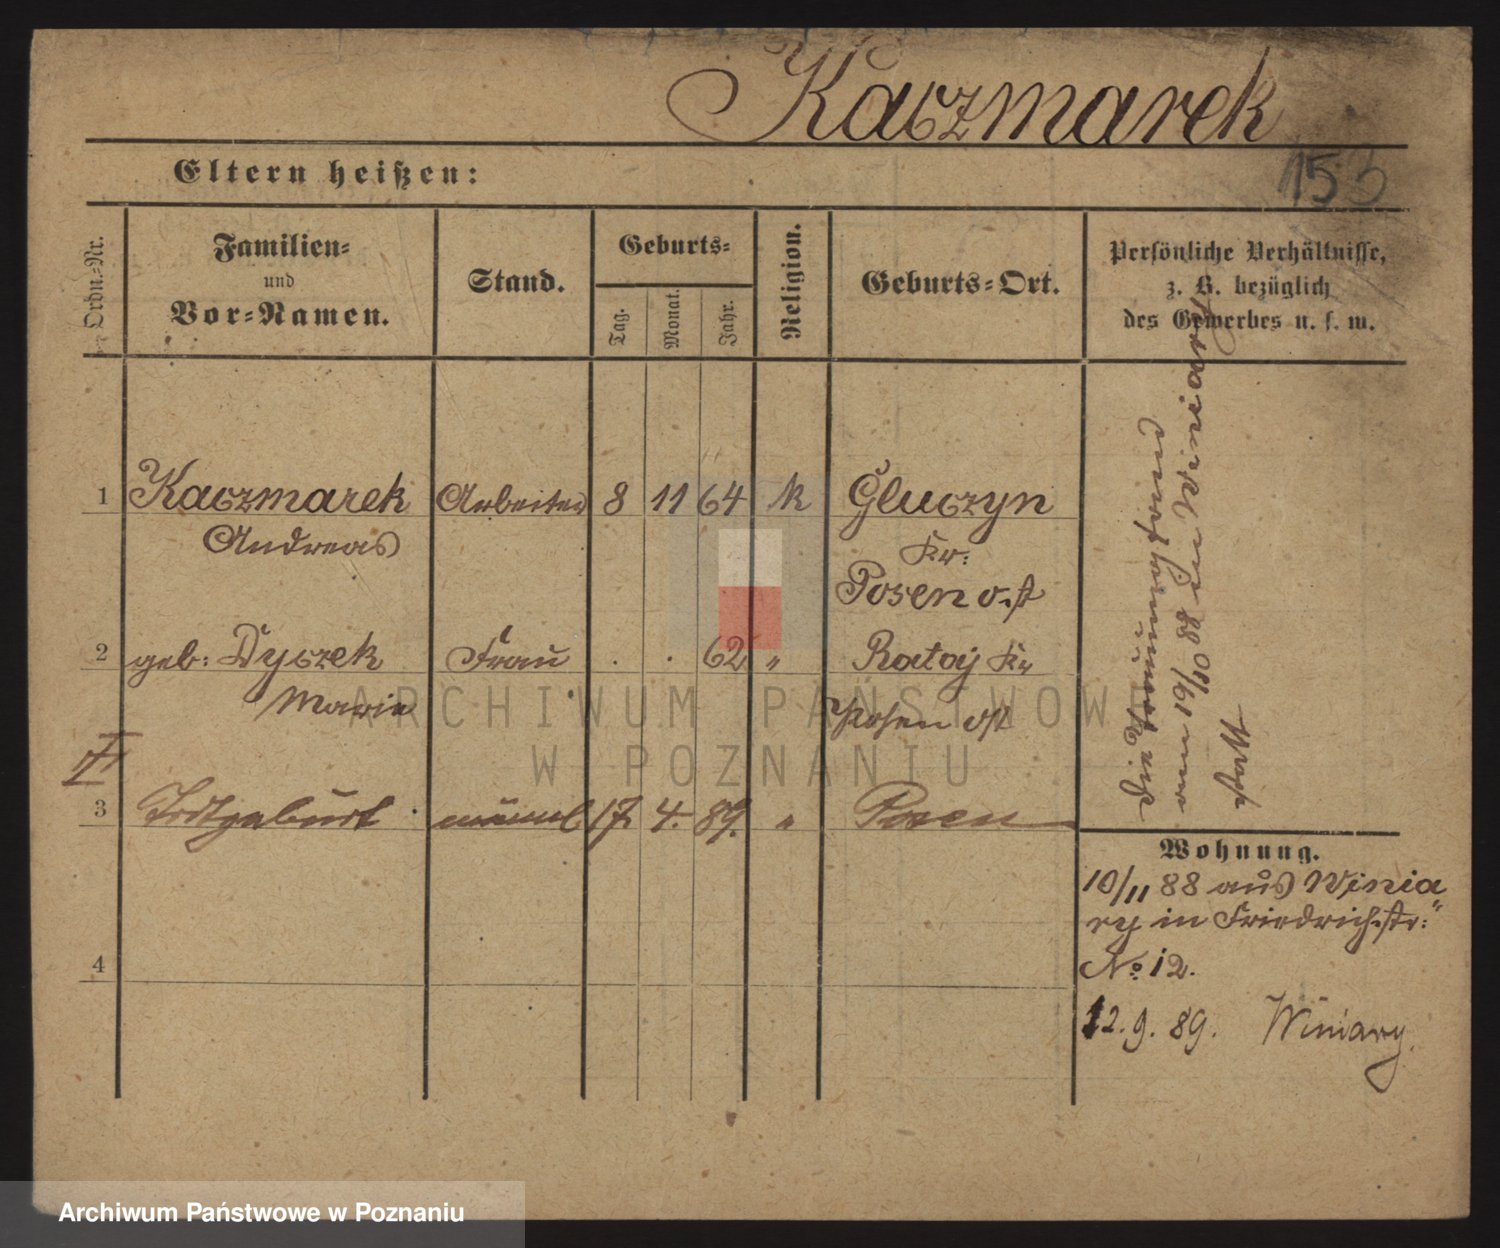 Kaczmarek
153
Eltern heißen:
Ordn.=Nr.
Familien=
und
Vor=Namen.
Stand.
Geburts=
Tag.
Monat.
Jahr.
Religion.
Geburts=Ort.
Persönliche Verhältnisse,
z. B. bezüglich
des Gewerbes u. s. w.
1 Kaczmarek Arbeiter 8 11 64 k Gluczyn
Andreas Kr:
Posen ost
2 geb: Dyczek Frau . . 62 " Rataj Kr
Marie Posen ost
3 Todtgeburt männl 17. 4. 89. " Posen
4
die
am 16/10 88 in Winiary
statt
Wohnung.
10/11 88 aus Winia
ry in Friedrichstr:
No 12.
12. 9. 89. Winiary.
ARCHIWUM PAŃSTWOWE
W POZNANIU
Archiwum Państwowe w Poznaniu